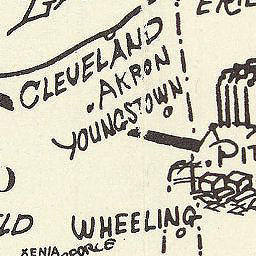 ERIE
CLEVELAND
AKRON
YOUNGSTOWN
PIT
WHEELING
LD
XENIA